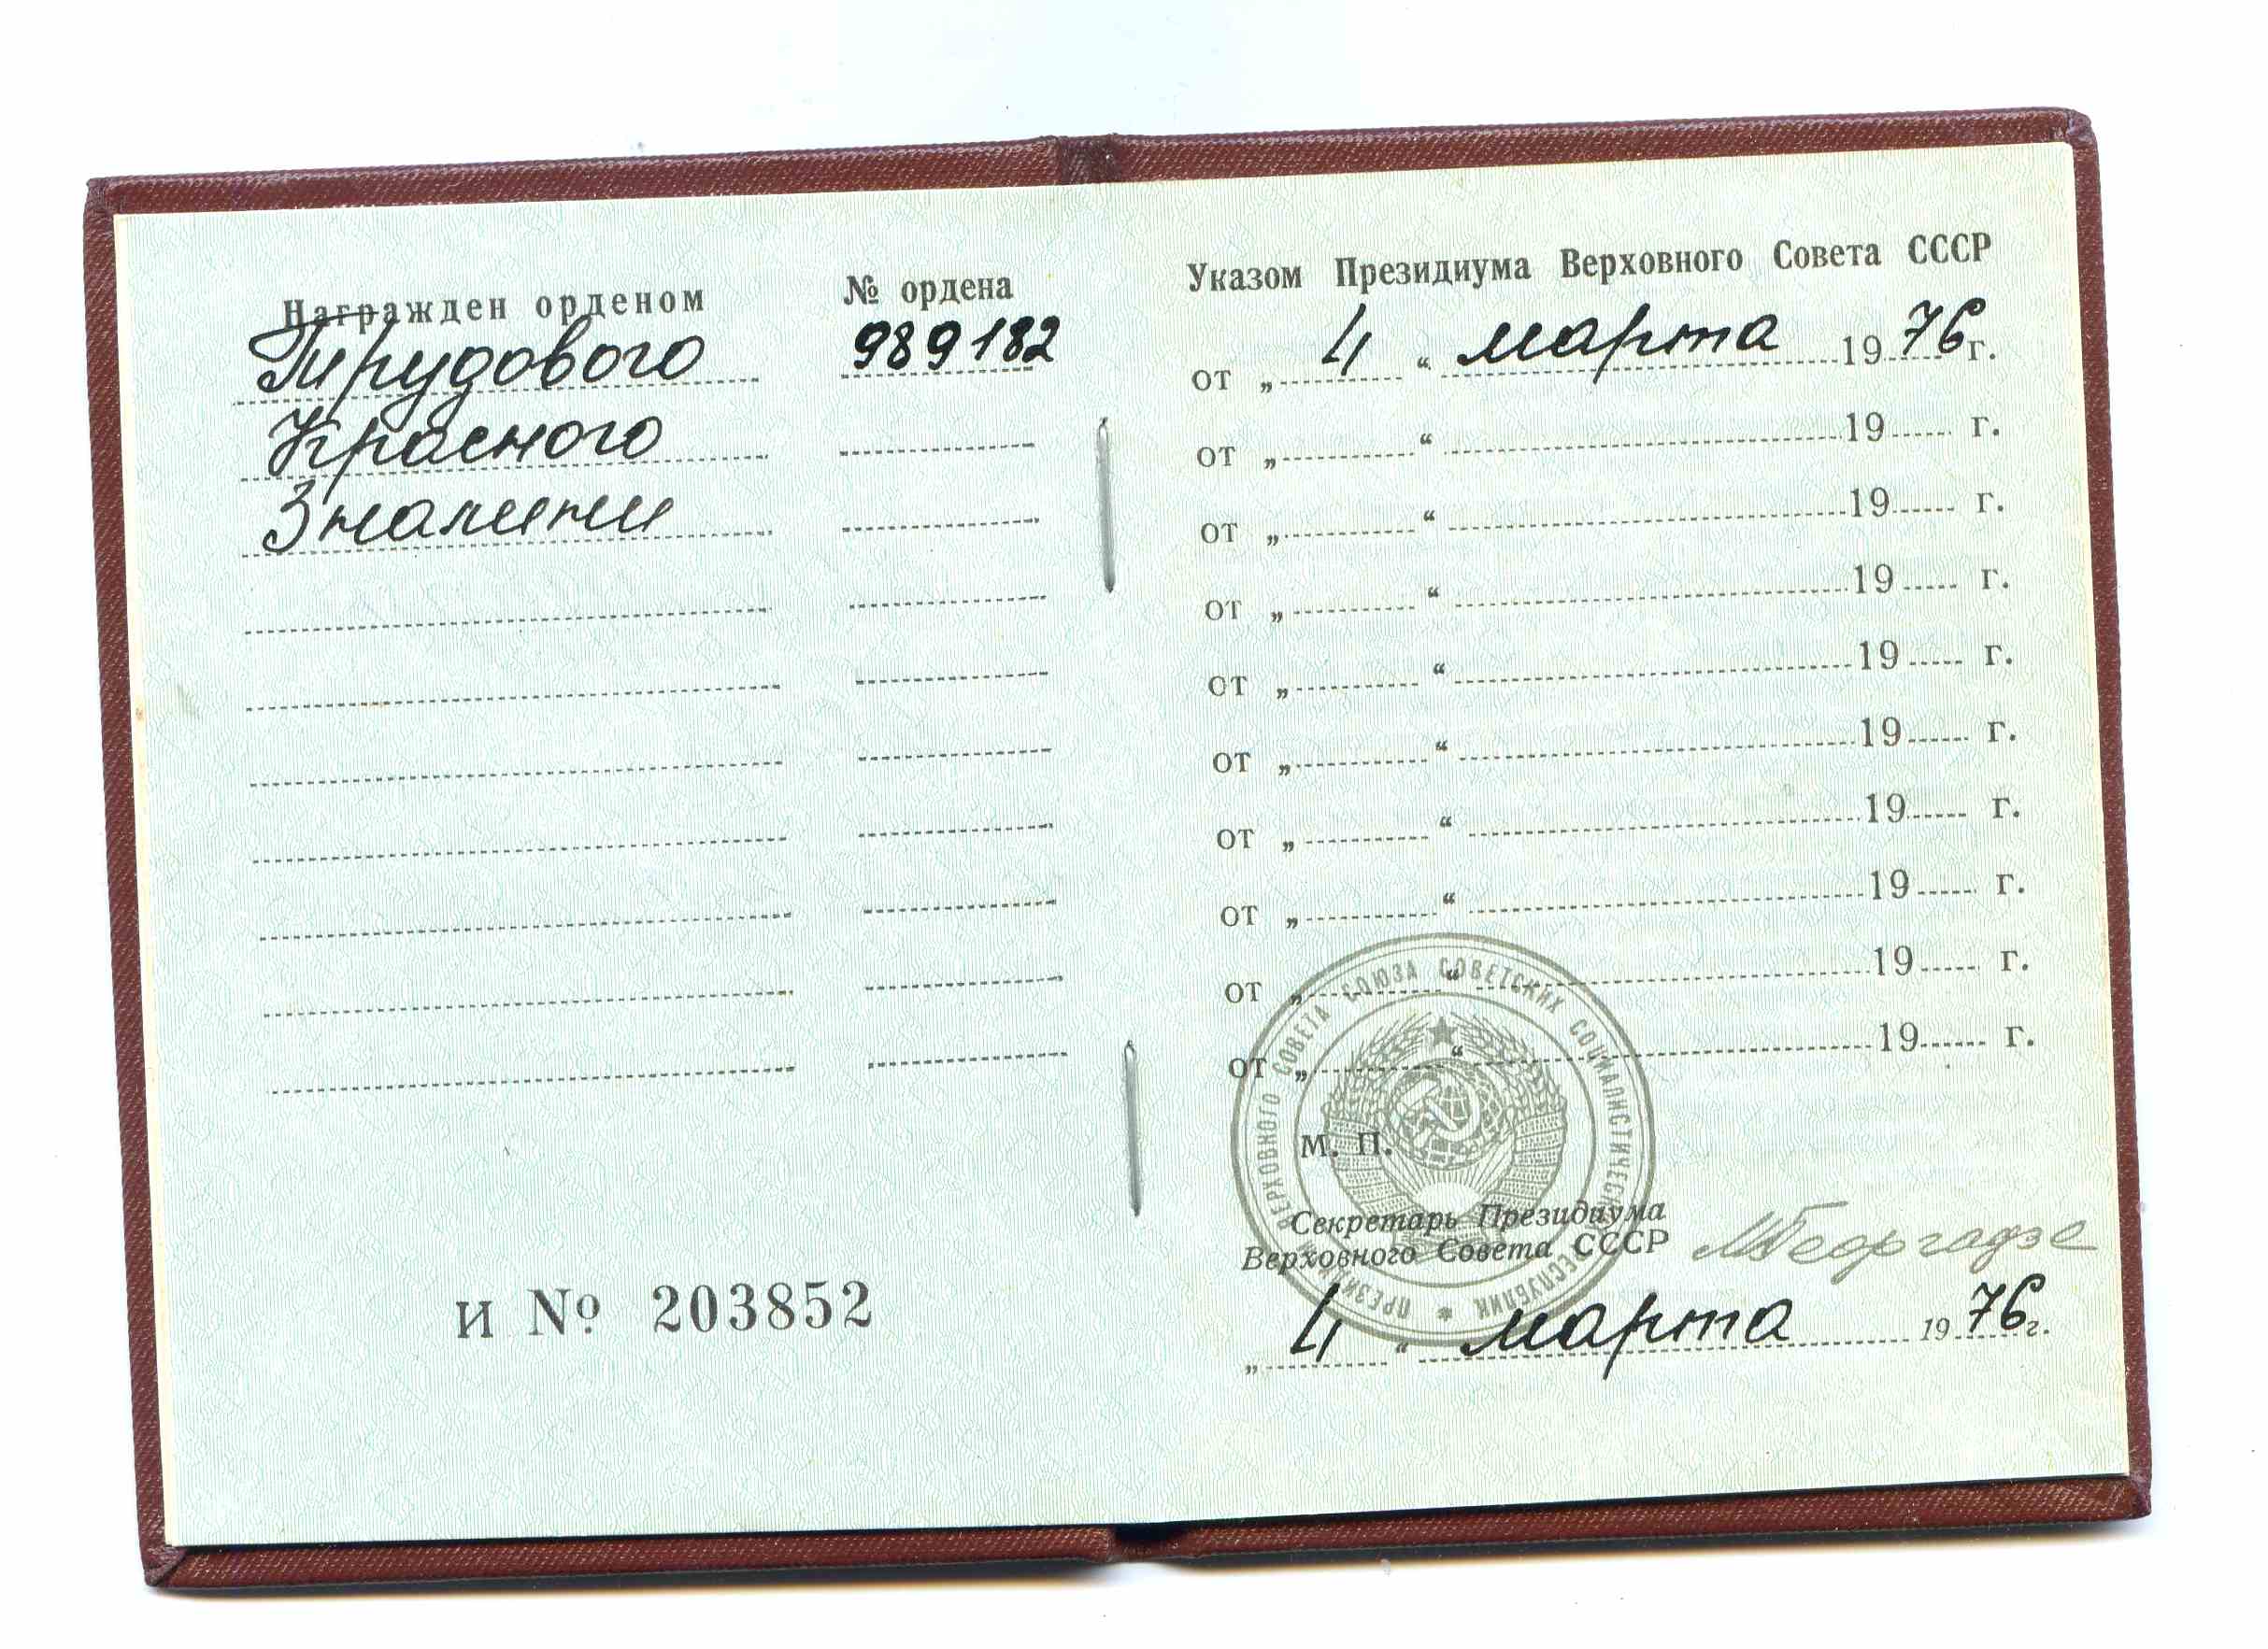 Награжден орденом
№ ордена
Трудового
989182
Красного
Знамени
И № 203852
Указом Президиума Верховного Совета СССР
от „ 4 “ марта 19 76 г.
от „ “ 19 г.
от „ “ 19 г.
от „ “ 19 г.
от „ “ 19 г.
от „ “ 19 г.
от „ “ 19 г.
от „ “ 19 г.
от „ “ 19 г.
от „ “ 19 г.
ПРЕЗИДИУМ ВЕРХОВНОГО СОВЕТА СОЮЗА СОВЕТСКИХ СОЦИАЛИСТИЧЕСКИХ РЕСПУБЛИК
М. П.
Секретарь Президиума
Верховного Совета СССР МГеоргадзе
„ 4 “ марта 19 76 г.